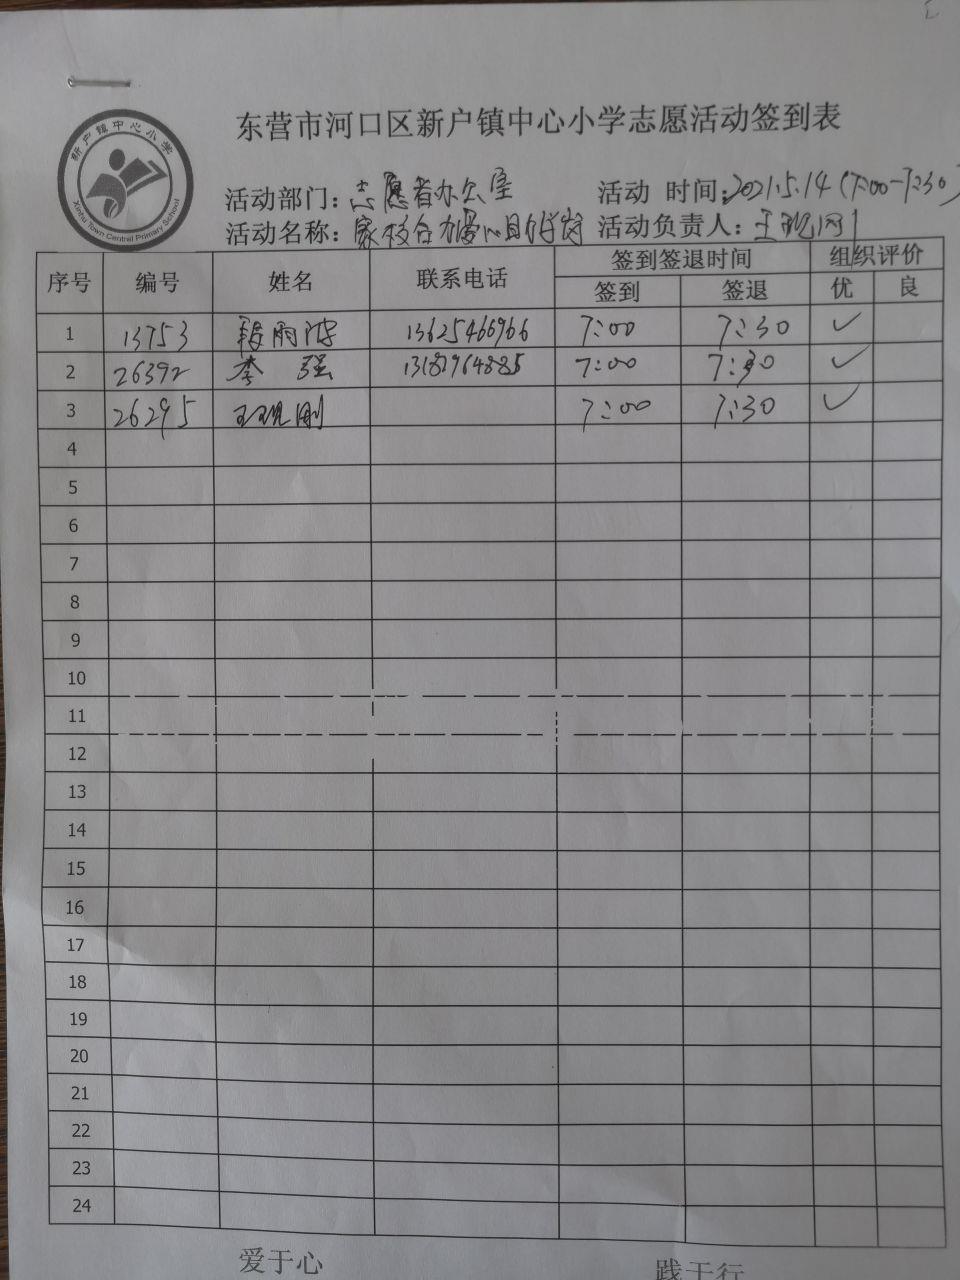 东营市河口区新户镇中心小学志愿活动签到表
新户镇中心小学
Xinhu Town Central Primary School
活动部门：志愿者办公室 活动 时间：2021.5.14（7:00-7:30）
活动名称：家校合力爱心 活动负责人：王
序号 编号 姓名 联系电话 签到签退时间 组织评价
签到 签退 优 良
1 13753 雨 13625466966 7:00 7:30 ✓
2 26392 李强 13182964885 7:00 7:30 ✓
3 26295 王 刚 7:00 7:30 ✓
4
5
6
7
8
9
10
11
12
13
14
15
16
17
18
19
20
21
22
23
24
爱于心 践于行